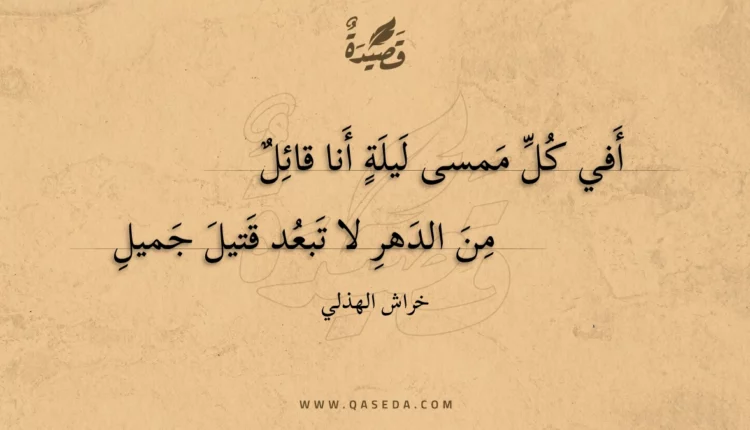 قَصِيْدَةٌ
أَفي كُلِّ مَمسى لَيلَةٍ أَنا قائِلٌ
مِنَ الدَهرِ لا تَبعُد قَتيلَ جَميلِ
خراش الهذلي
WWW.QASEDA.COM